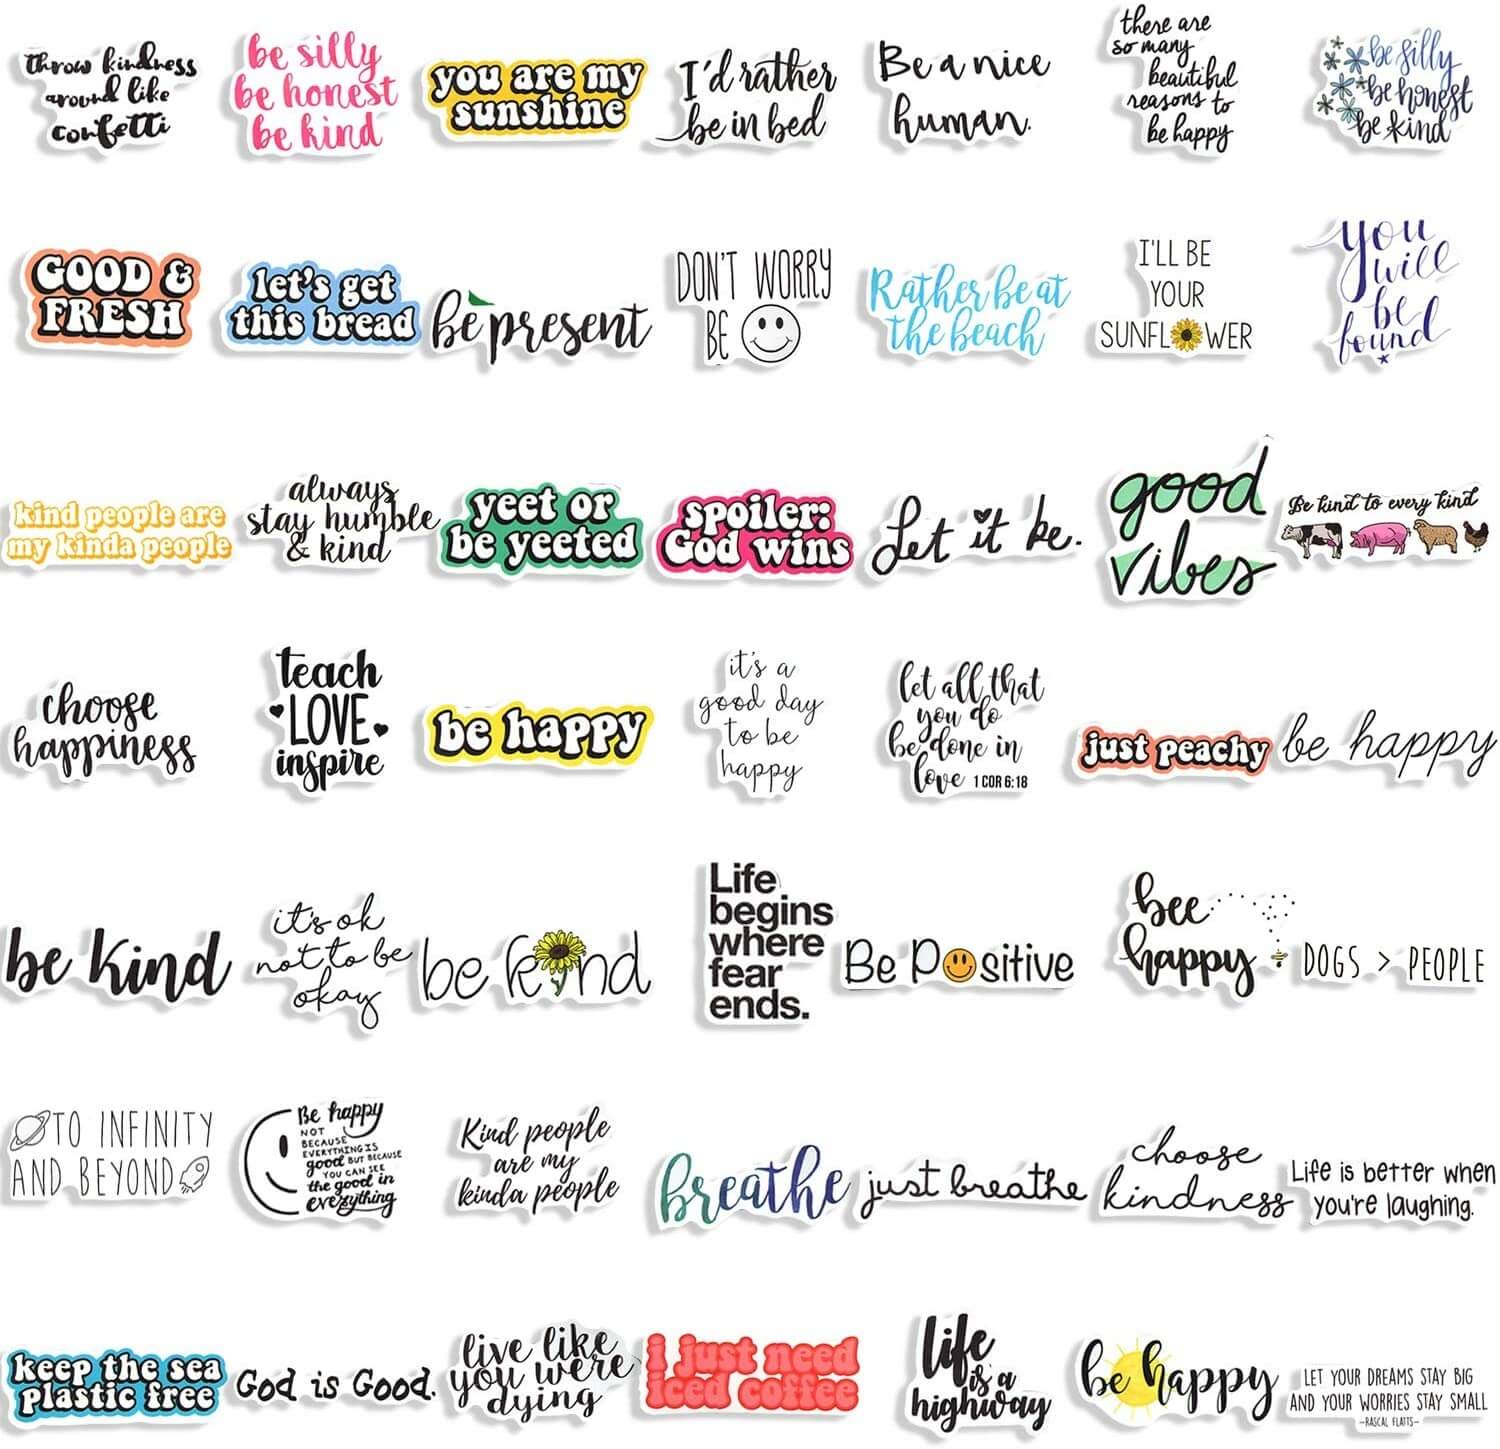 throw kindness
around like
confetti
be silly
be honest
be kind
you are my
sunshine
I'd rather
be in bed
Be a nice
human.
there are
so many
beautiful
reasons to
be happy
be silly
be honest
be kind
GOOD &
FRESH
let's get
this bread
be present
DON'T WORRY
BE
Rather be at
the beach
I'LL BE
YOUR
SUNFLOWER
you
will
be
found
kind people are
my kinda people
always
stay humble
& kind
yeet or
be yeeted
spoiler:
God wins
Let it be.
good
vibes
Be kind to every kind
choose
happiness
teach
LOVE
inspire
be happy
it's a
good day
to be
happy
let all that
you do
be done in
love 1 COR 6:18
just peachy
be happy
be kind
it's ok
not to be
okay
be kind
Life
begins
where
fear
ends.
Be Positive
bee
happy
DOGS > PEOPLE
TO INFINITY
AND BEYOND
Be happy
NOT
BECAUSE
EVERYTHING IS
good BUT BECAUSE
YOU CAN SEE
the good in
everything
Kind people
are my
kinda people
breathe
just breathe
choose
kindness
Life is better when
you're laughing.
keep the sea
plastic free
God is Good.
live like
you were
dying
i just need
iced coffee
life
is a
highway
be happy
LET YOUR DREAMS STAY BIG
AND YOUR WORRIES STAY SMALL
-RASCAL FLATTS-